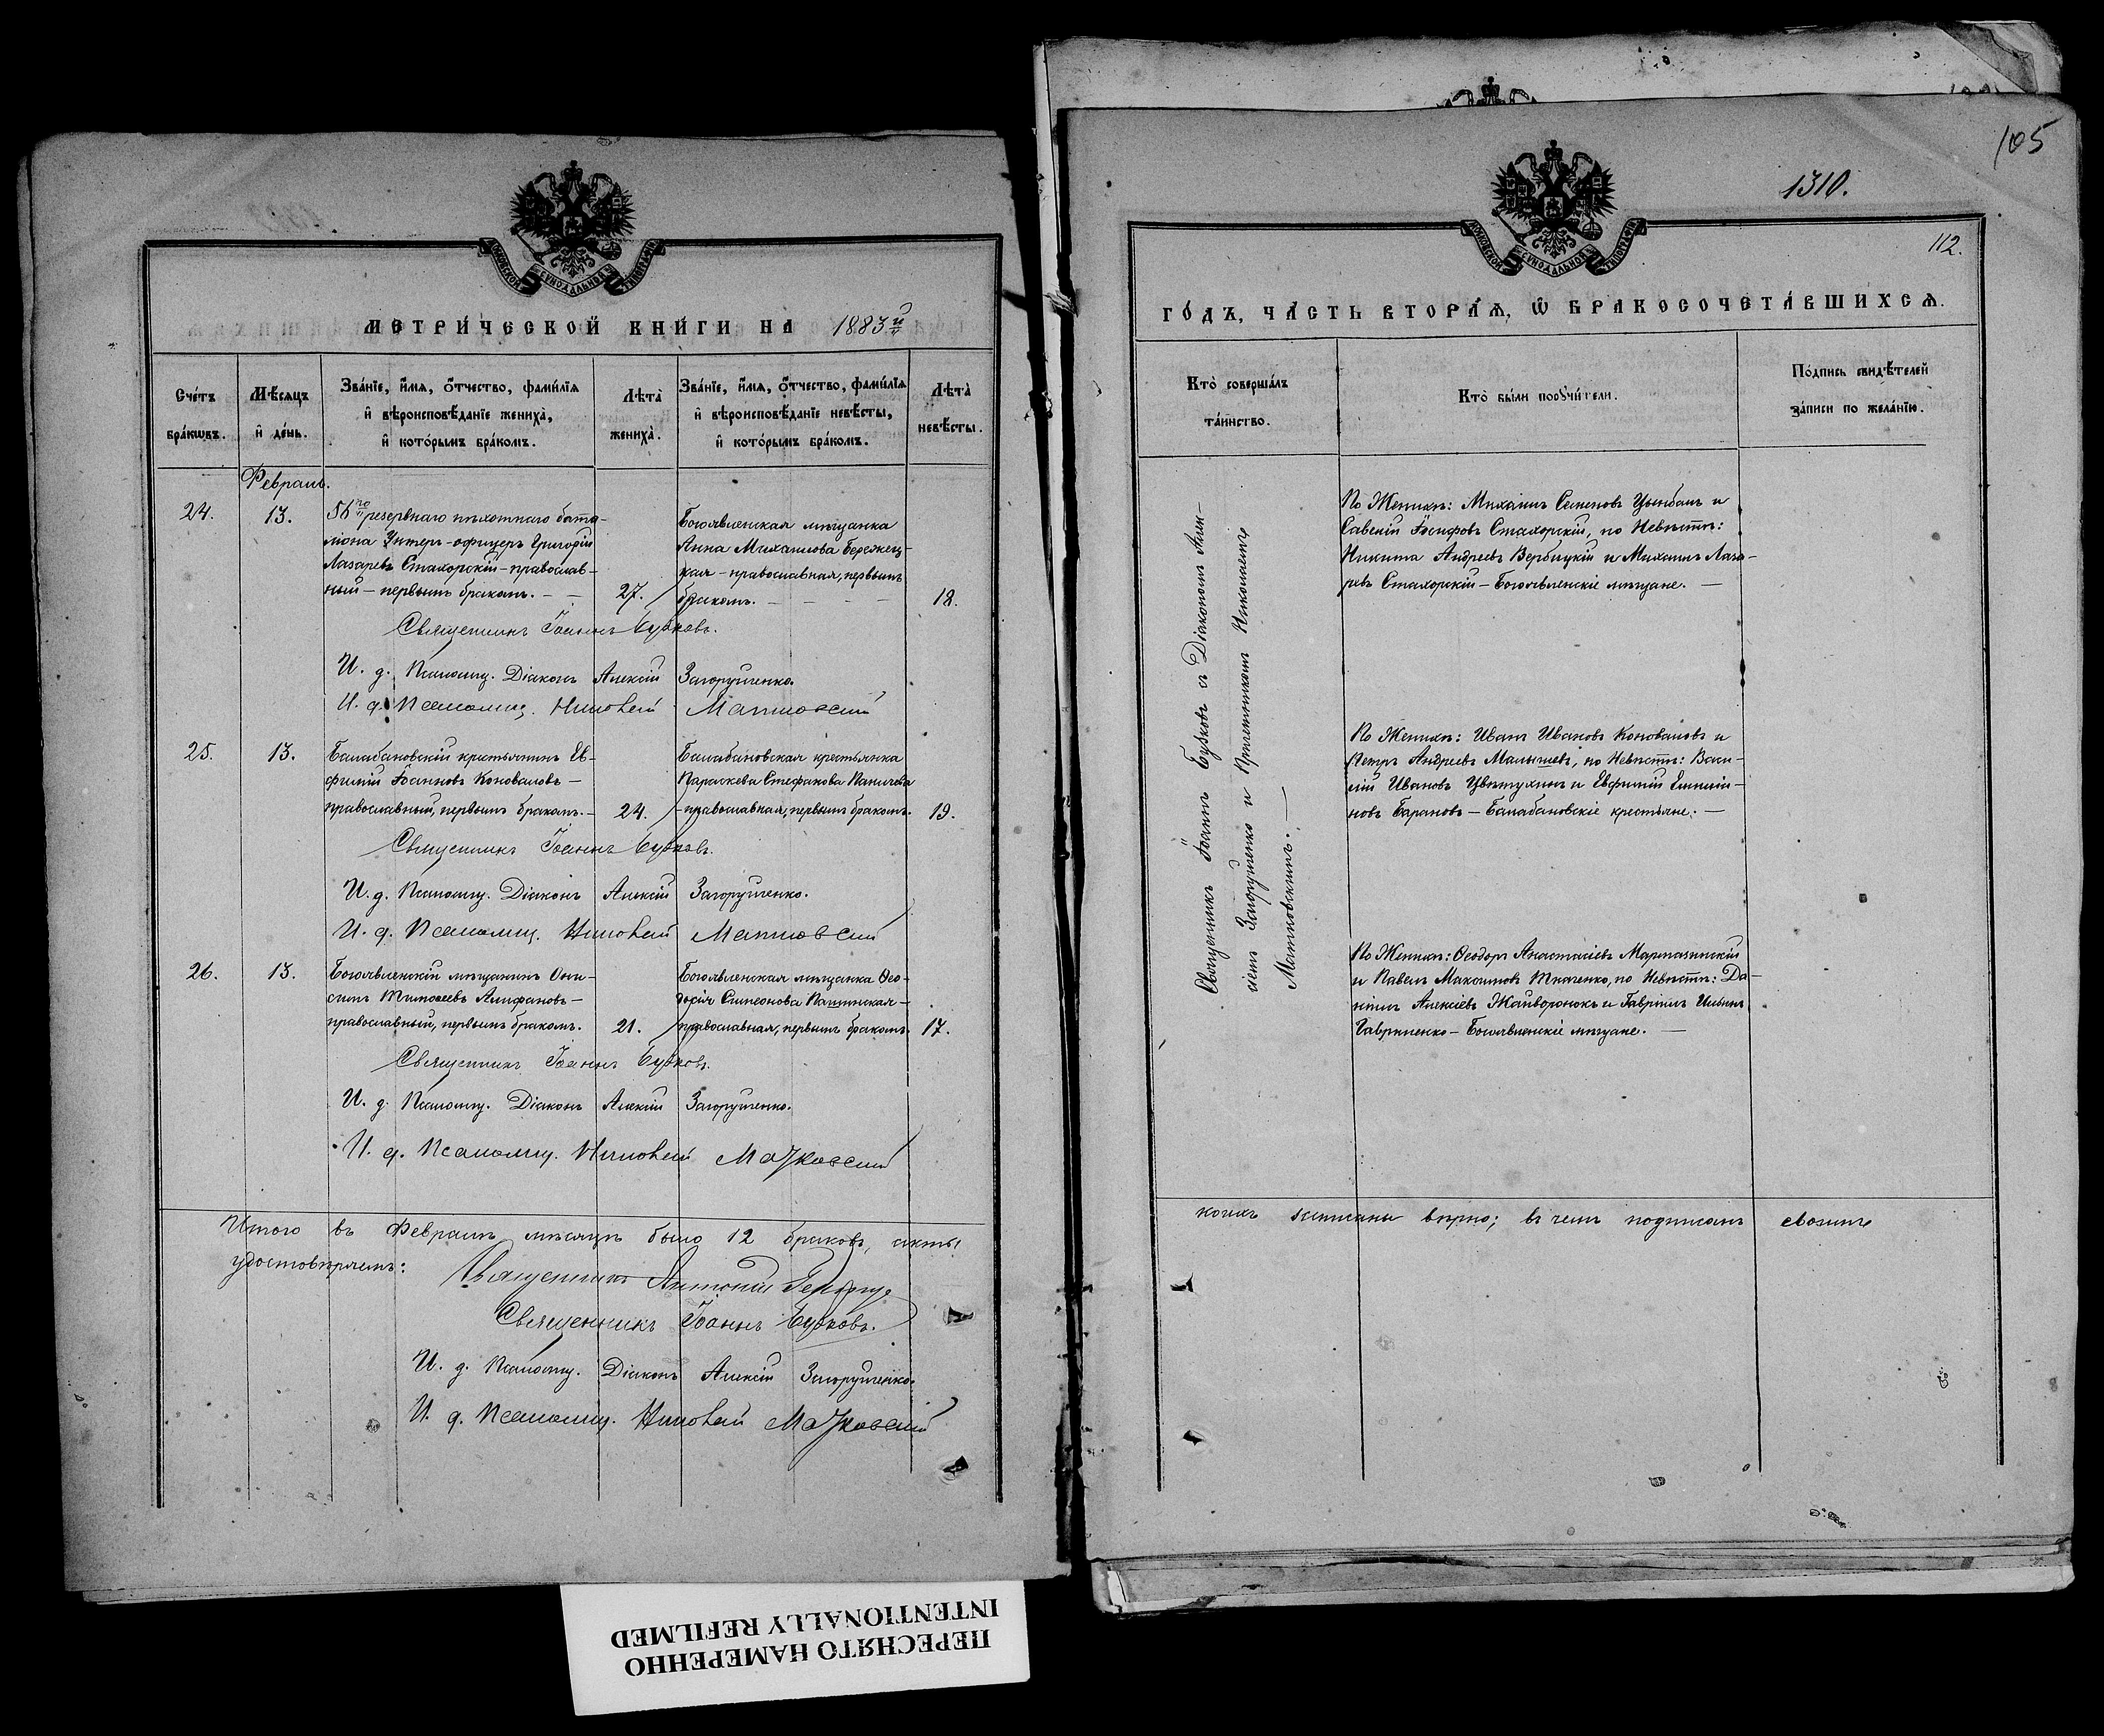 105
1310.
112.
МОСКОВСКОЙ СѴНОДАЛЬНОЙ ТИПОГРАФІИ
МЕТРИ́ЧЕСКОЙ КНИ́ГИ НА 1883й
Сче́тъ бра́кωвъ.
Мѣ́сяцъ и҆ де́нь.
Зва́нїе, и҆́мѧ, ѻ҆́тчество, фами́лїѧ и҆ вѣроисповѣ́данїе жениха̀, и҆ кото́рымъ бра́комъ.
Лѣ́та̀ жениха̀.
Зва́нїе, и҆́мѧ, ѻ҆́тчество, фами́лїѧ и҆ вѣроисповѣ́данїе невѣ́сты, и҆ кото́рымъ бра́комъ.
Лѣ́та̀ невѣ́сты.
Февраль.
24.
13.
56го резервнаго пѣхотнаго бата-
ліона Унтеръ-офицеръ Григорій
Лазаревъ Стахорскій – православ-
ный – первымъ бракомъ. – –
27.
Богоявленская мѣщанка
Анна Михаилова Бережец-
кая – православная, первымъ
бракомъ. – – – –
18.
Священникъ Іоаннъ Бубковъ.
И. д. Псаломщ. Діаконъ Алексій Загорущенко.
И. д. Псаломщ. Николай
25.
13.
Балабановскій крестьянинъ Ев-
фимій Іоанновъ Коноваловъ –
православный, первымъ бракомъ. –
24.
Балабановская крестьянка
Параскева Стефанова Паничева
– православная, первымъ бракомъ.
19.
Священникъ Іоаннъ Бубковъ.
И. д. Псаломщ. Діаконъ Алексій Загорущенко.
И. д. Псаломщ. Николай
26.
13.
Богоявленскій мѣщанинъ Они-
симъ Тимоѳеевъ Алифановъ –
православный, первымъ бракомъ.
21.
Богоявленская мѣщанка Ѳео-
досія Симеонова Пашинская –
православная, первымъ бракомъ.
17.
Священникъ Іоаннъ Бубковъ.
И. д. Псаломщ. Діаконъ Алексій Загорущенко.
И. д. Псаломщ. Николай
Итого въ Февралѣ мѣсяцѣ было 12 браковъ, акты
удостовѣряемъ:
Священникъ Антоній
Священникъ Іоаннъ Бубковъ.
И. д. Псаломщ. Діаконъ Алексій Загорущенко.
И. д. Псаломщ. Николай
МОСКОВСКОЙ СѴНОДАЛЬНОЙ ТИПОГРАФІИ
ГО́ДЪ, ЧА́СТЬ ВТОРА́Ѧ, Ѿ БРАКОСОЧЕТА́ВШИХСѦ.
Кто̀ соверша́лъ та́инство.
Кто̀ бы́ли порꙋчи́тели.
По́дпись свидѣ́телей за́писи по жела́нїю.
Священникъ Іоаннъ Бубковъ съ Діакономъ Алек-
сіемъ Загорущенко и Причетникомъ Николаемъ
По Женихѣ: Михаилъ Семеновъ Цымбалъ и
Савелій Іосифовъ Стахорскій, по Невѣстѣ:
Никита Андреевъ Вербицкій и Михаилъ Лаза-
ревъ Стахорскій – Богоявленскіе мѣщане. –
По Женихѣ: Иванъ Ивановъ Коноваловъ и
Петръ Андреевъ Малышевъ, по Невѣстѣ: Васи-
лій Ивановъ Цвѣтухинъ и Евфимій
новъ Барановъ – Балабановскіе крестьяне. –
По Женихѣ: Ѳеодоръ Анастасіевъ
и Павелъ Максимовъ Ткаченко, по Невѣстѣ: Да-
ніилъ Алексіевъ Жайворонокъ и Гавріилъ Ильинъ
Гавриленко – Богоявленскіе мѣщане. –
коихъ записаны вѣрно; въ чемъ подписомъ своимъ
ПЕРЕСНЯТО НАМЕРЕННО
INTENTIONALLY REFILMED